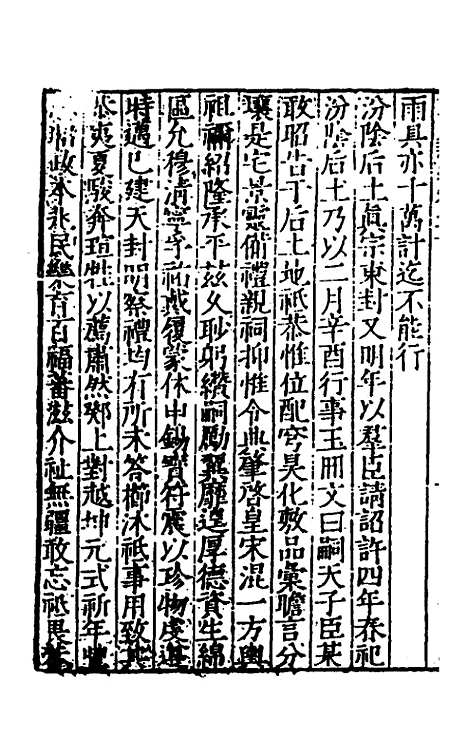 雨具亦十萬計迄不能行
汾陰后土真宗東封又明年以羣臣請詔許四年春祀
汾陰后土乃以二月辛酉行事玉冊文曰嗣天子臣某
敢昭告于后土地祇恭惟位配穹昊化敷品彙瞻言分
壤是宅景靈備禮親祠抑惟令典肇啓皇宋混一方輿
祖禰紹隆承平茲久眇躬纘嗣勵翼靡遑厚德資生綿
區允穆清寧孚祐戴履蒙休申錫寶符震以珍物虔遵
時邁已建天封明察禮均有所未答櫛沐祇事用致其
恭夷夏駿奔瑄牲以薦肅然鄈上對越坤元式祈年豐
政本永民樂育百福蕃滋介祉無疆敢忘祗畏